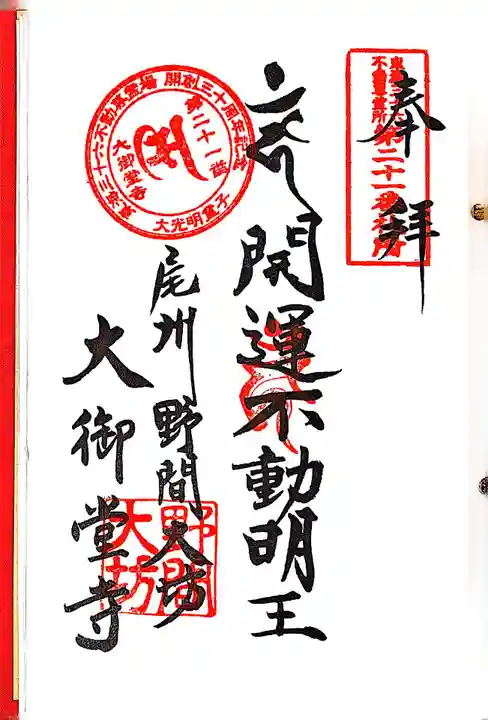 奉拝
不動霊場
第二十一番札所
開運不動明王
尾州野間大坊
大御堂寺
東海三十六不動尊霊場 開創三十周年記念
第二十一番
大御堂寺
大光明童子
野間
大坊